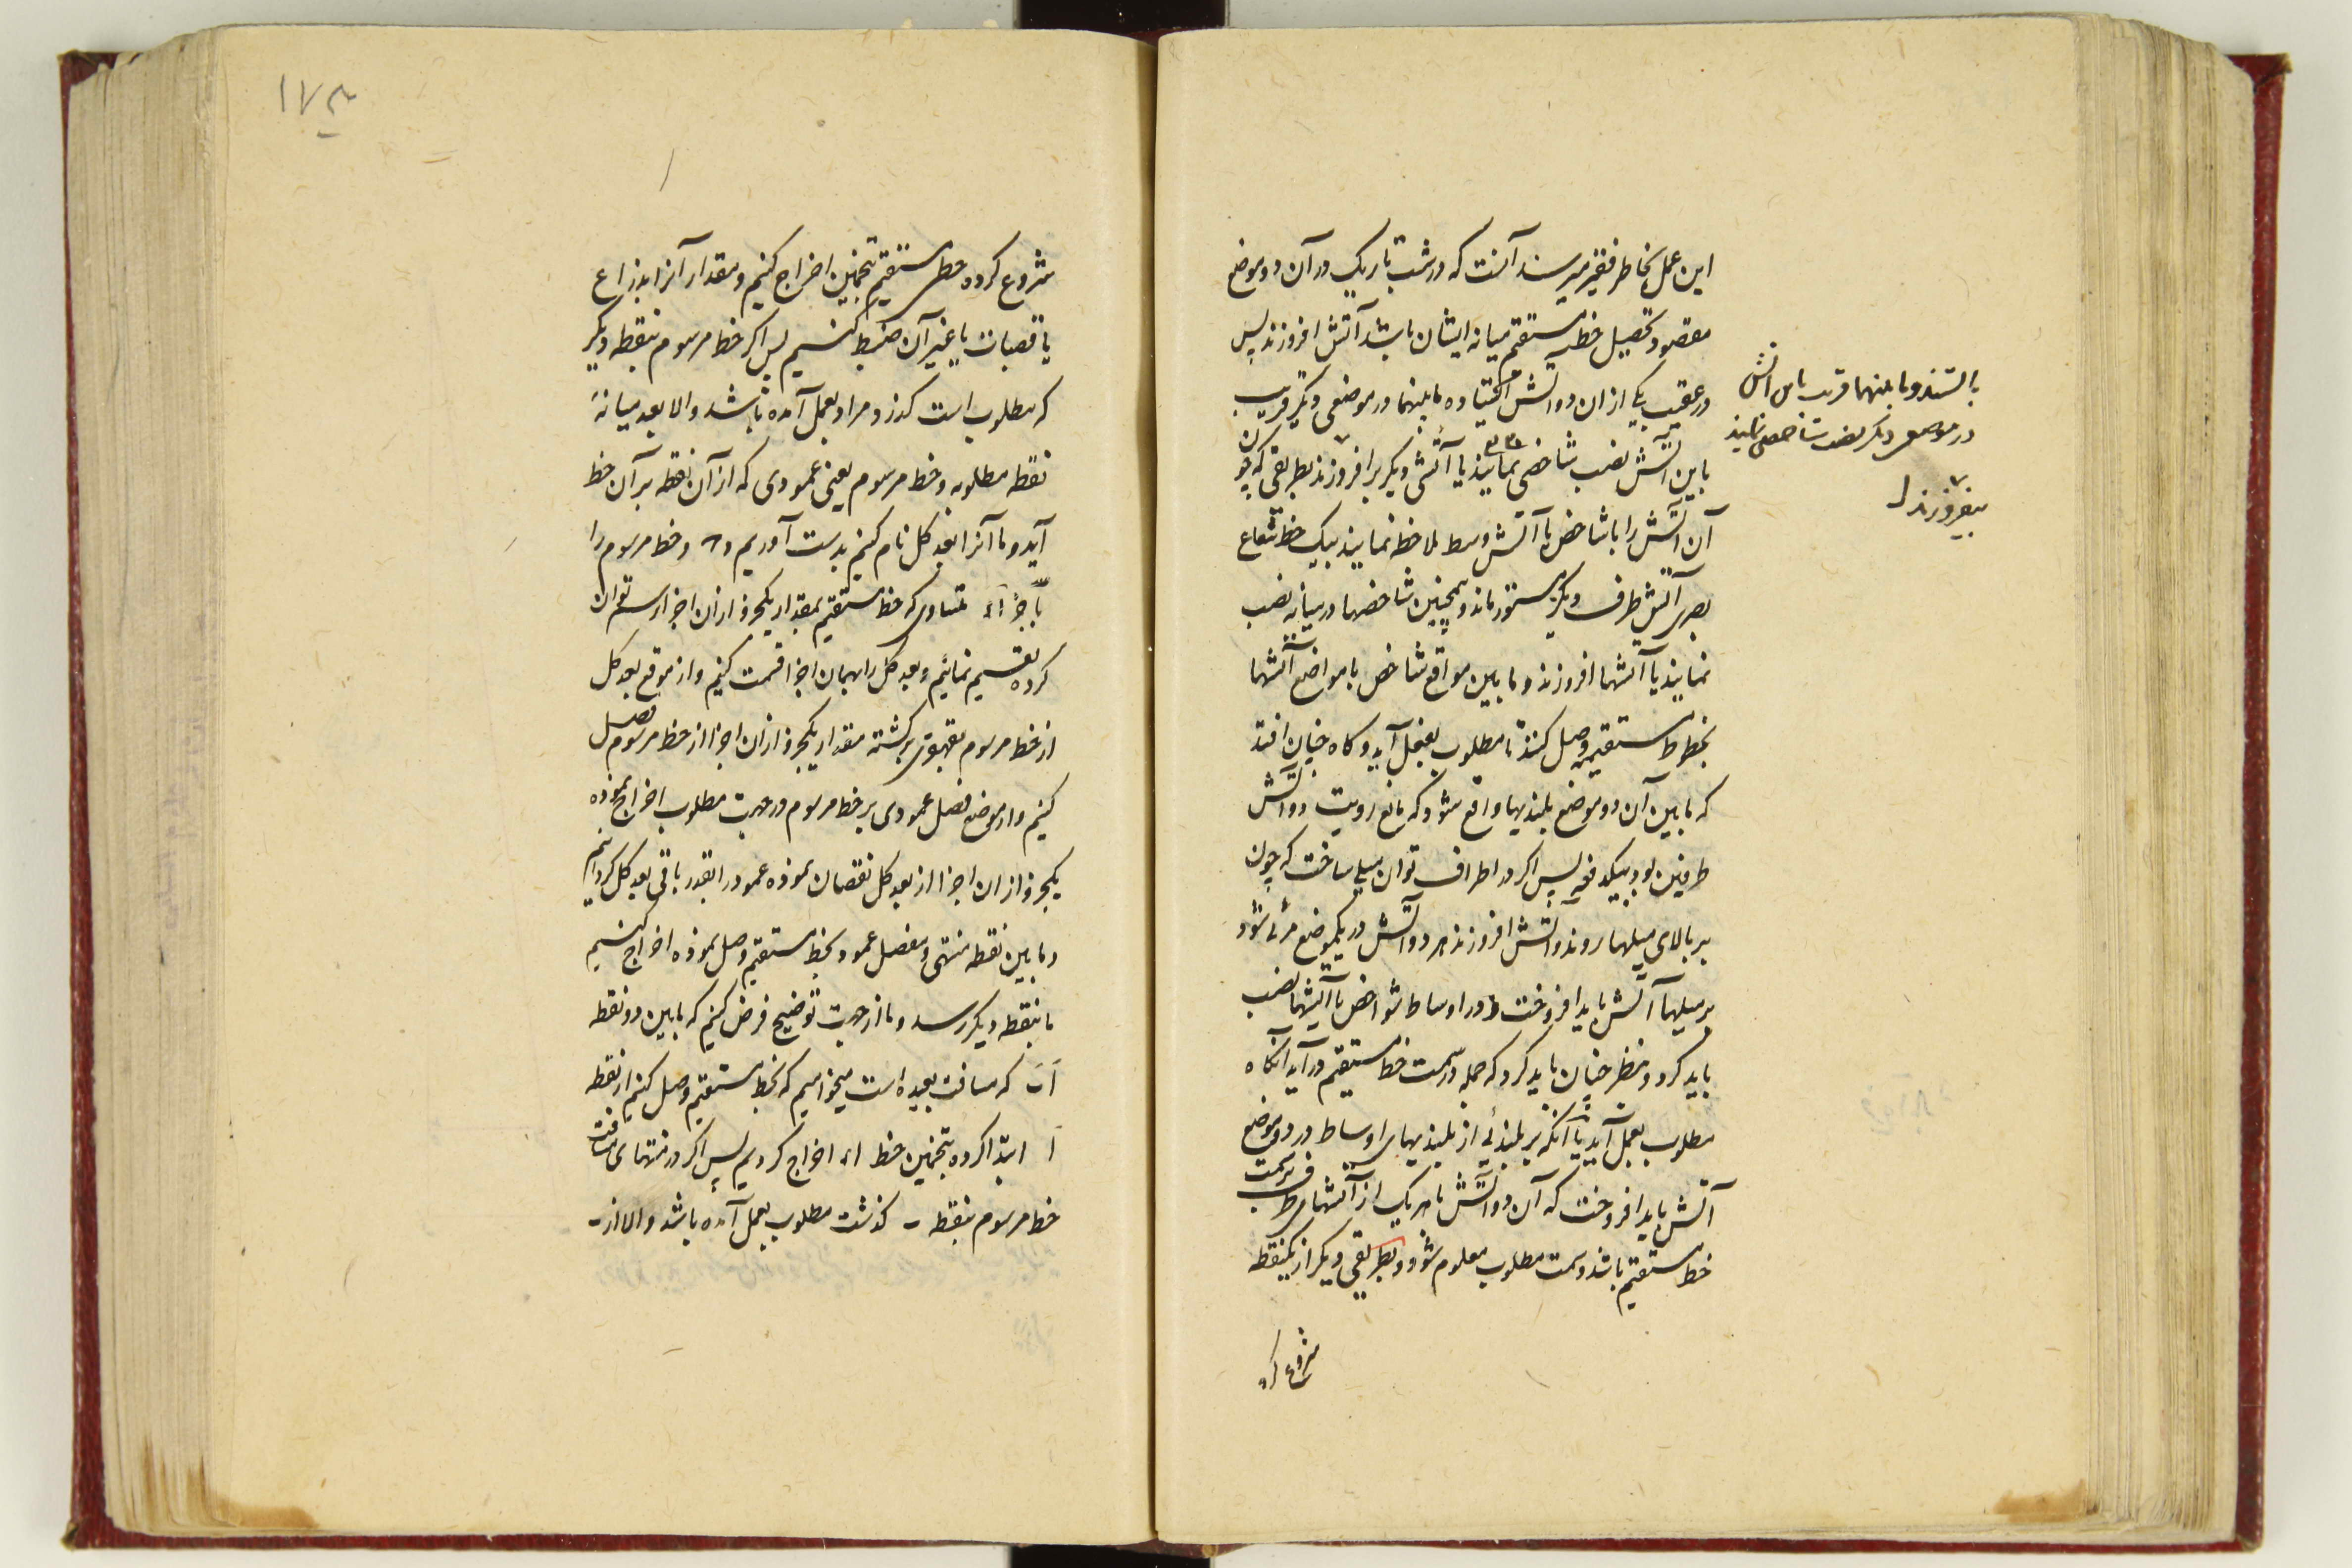 این عمل بخاطر فقیر میرسد آنست که در شب تاریک در آن دو موضع
مقصود تحصیل خط مستقیم میانه ایشان باشد آتش افروزند پس
در عقب یکی ازان دو آتش ایستاده مابینهما در موضعی دیگر قریب
باین آتش نصب شاخصی نمایند یا آتشی دیگر برافروزند بطریقی که چون
آن آتش را با شاخص یا آتش وسط ملاحظه نمایند بیک خط شعاع
بصری آتش طرف دیگر مستور ماند و همچنین شاخصها درمیانه نصب
نمایند یا آتشها افروزند و مابین مواقع شاخص با مواضع آتشها
بخطوط مستقیمه وصل کنند تا مطلوب بفعل آید و گاه چنان افتد
که مابین آن دو موضع بلندیها واقع شود که مانع رویت دو آتش
طرفین بود بیکدفعه پس اگر در اطراف توان میلی ساخت که چون
بر بالای میلها روند و آتش افروزند هر دو آتش در یکموضع مرئی شود
بر میلها آتش باید افروخت و در اوساط شواخص یا آتشها نصب
باید کرد و بنظر چنان باید کرد که جمله در سمت خط مستقیم درآید آنگاه
مطلوب بعمل آید یا آنکه بر بلندئی از بلندیهای اوساط در دو موضع
آتش باید افروخت که آن دو آتش با هر یک از آتشهای طرف بر سمت
خط مستقیم باشد و سمت مطلوب معلوم شود و بطریقی دیگر از یکنقطه
شروع کرده
بایستند و مابینهما قریب باین آتش
در موضعی دیگر نصب شاخصی نمایند
بیفروزند
۱۷۳
شروع کرده خط مستقیم بتخمین اخراج کنیم و مقدار آنرا بذراع
یا قصبات یا غیر آن ضبط کنیم پس اگر خط مرسوم بنقطه دیگر
که مطلوب است گذرد مراد بعمل آمده باشد والا بعد میانه
نقطه مطلوبه و خط مرسوم یعنی عمودی که از آن نقطه بر آن خط
آید و ما آنرا بعد کل نام کنیم بدست آوریم و خط مرسوم را
باجزاء متساوی که خط مستقیم بمقدار یکجزو ازان اجزا رسم توان
کرده تقسیم نمائیم و بعد کل را بهمان اجزا قسمت کنیم و از موقع بعد کل
از خط مرسوم بقهقری برگشته مقدار یکجزو ازان اجزا از خط مرسوم فصل
کنیم و از موضع فصل عمودی بر خط مرسوم در جهت مطلوب اخراج نموده
یکجزو ازان اجزا از بعد کل نقصان نموده عمود را بقدر باقی بعد کل گردانیم
و مابین نقطه منتهی و مفصل عمود بخط مستقیم وصل نموده اخراج کنیم
تا بنقطه دیگر رسد و ما از جهت توضیح فرض کنیم که مابین دو نقطه
اَبَ که مسافت بعیده است میخواهیم که بخط مستقیم وصل کنیم از نقطه
اَ ابتدا کرده بتخمین خط اء اخراج کردیم پس اگر در منتهای مسافت
خط مرسوم بنقطه ب گذشت مطلوب بعمل آمده باشد والا از ب